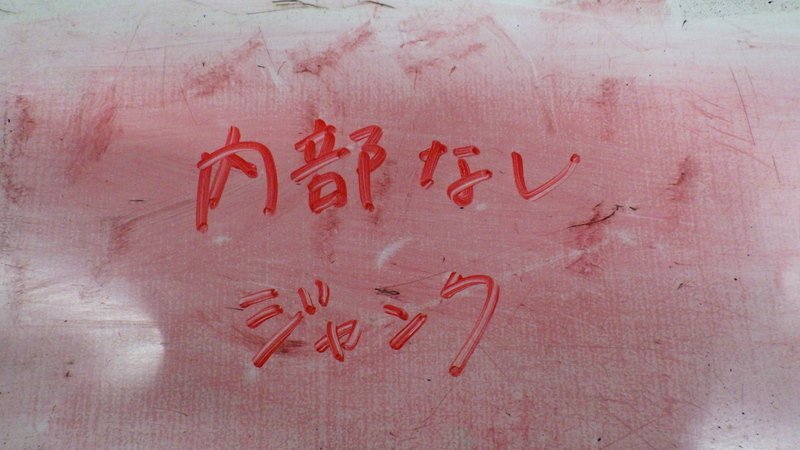 内部なし
ジャンク